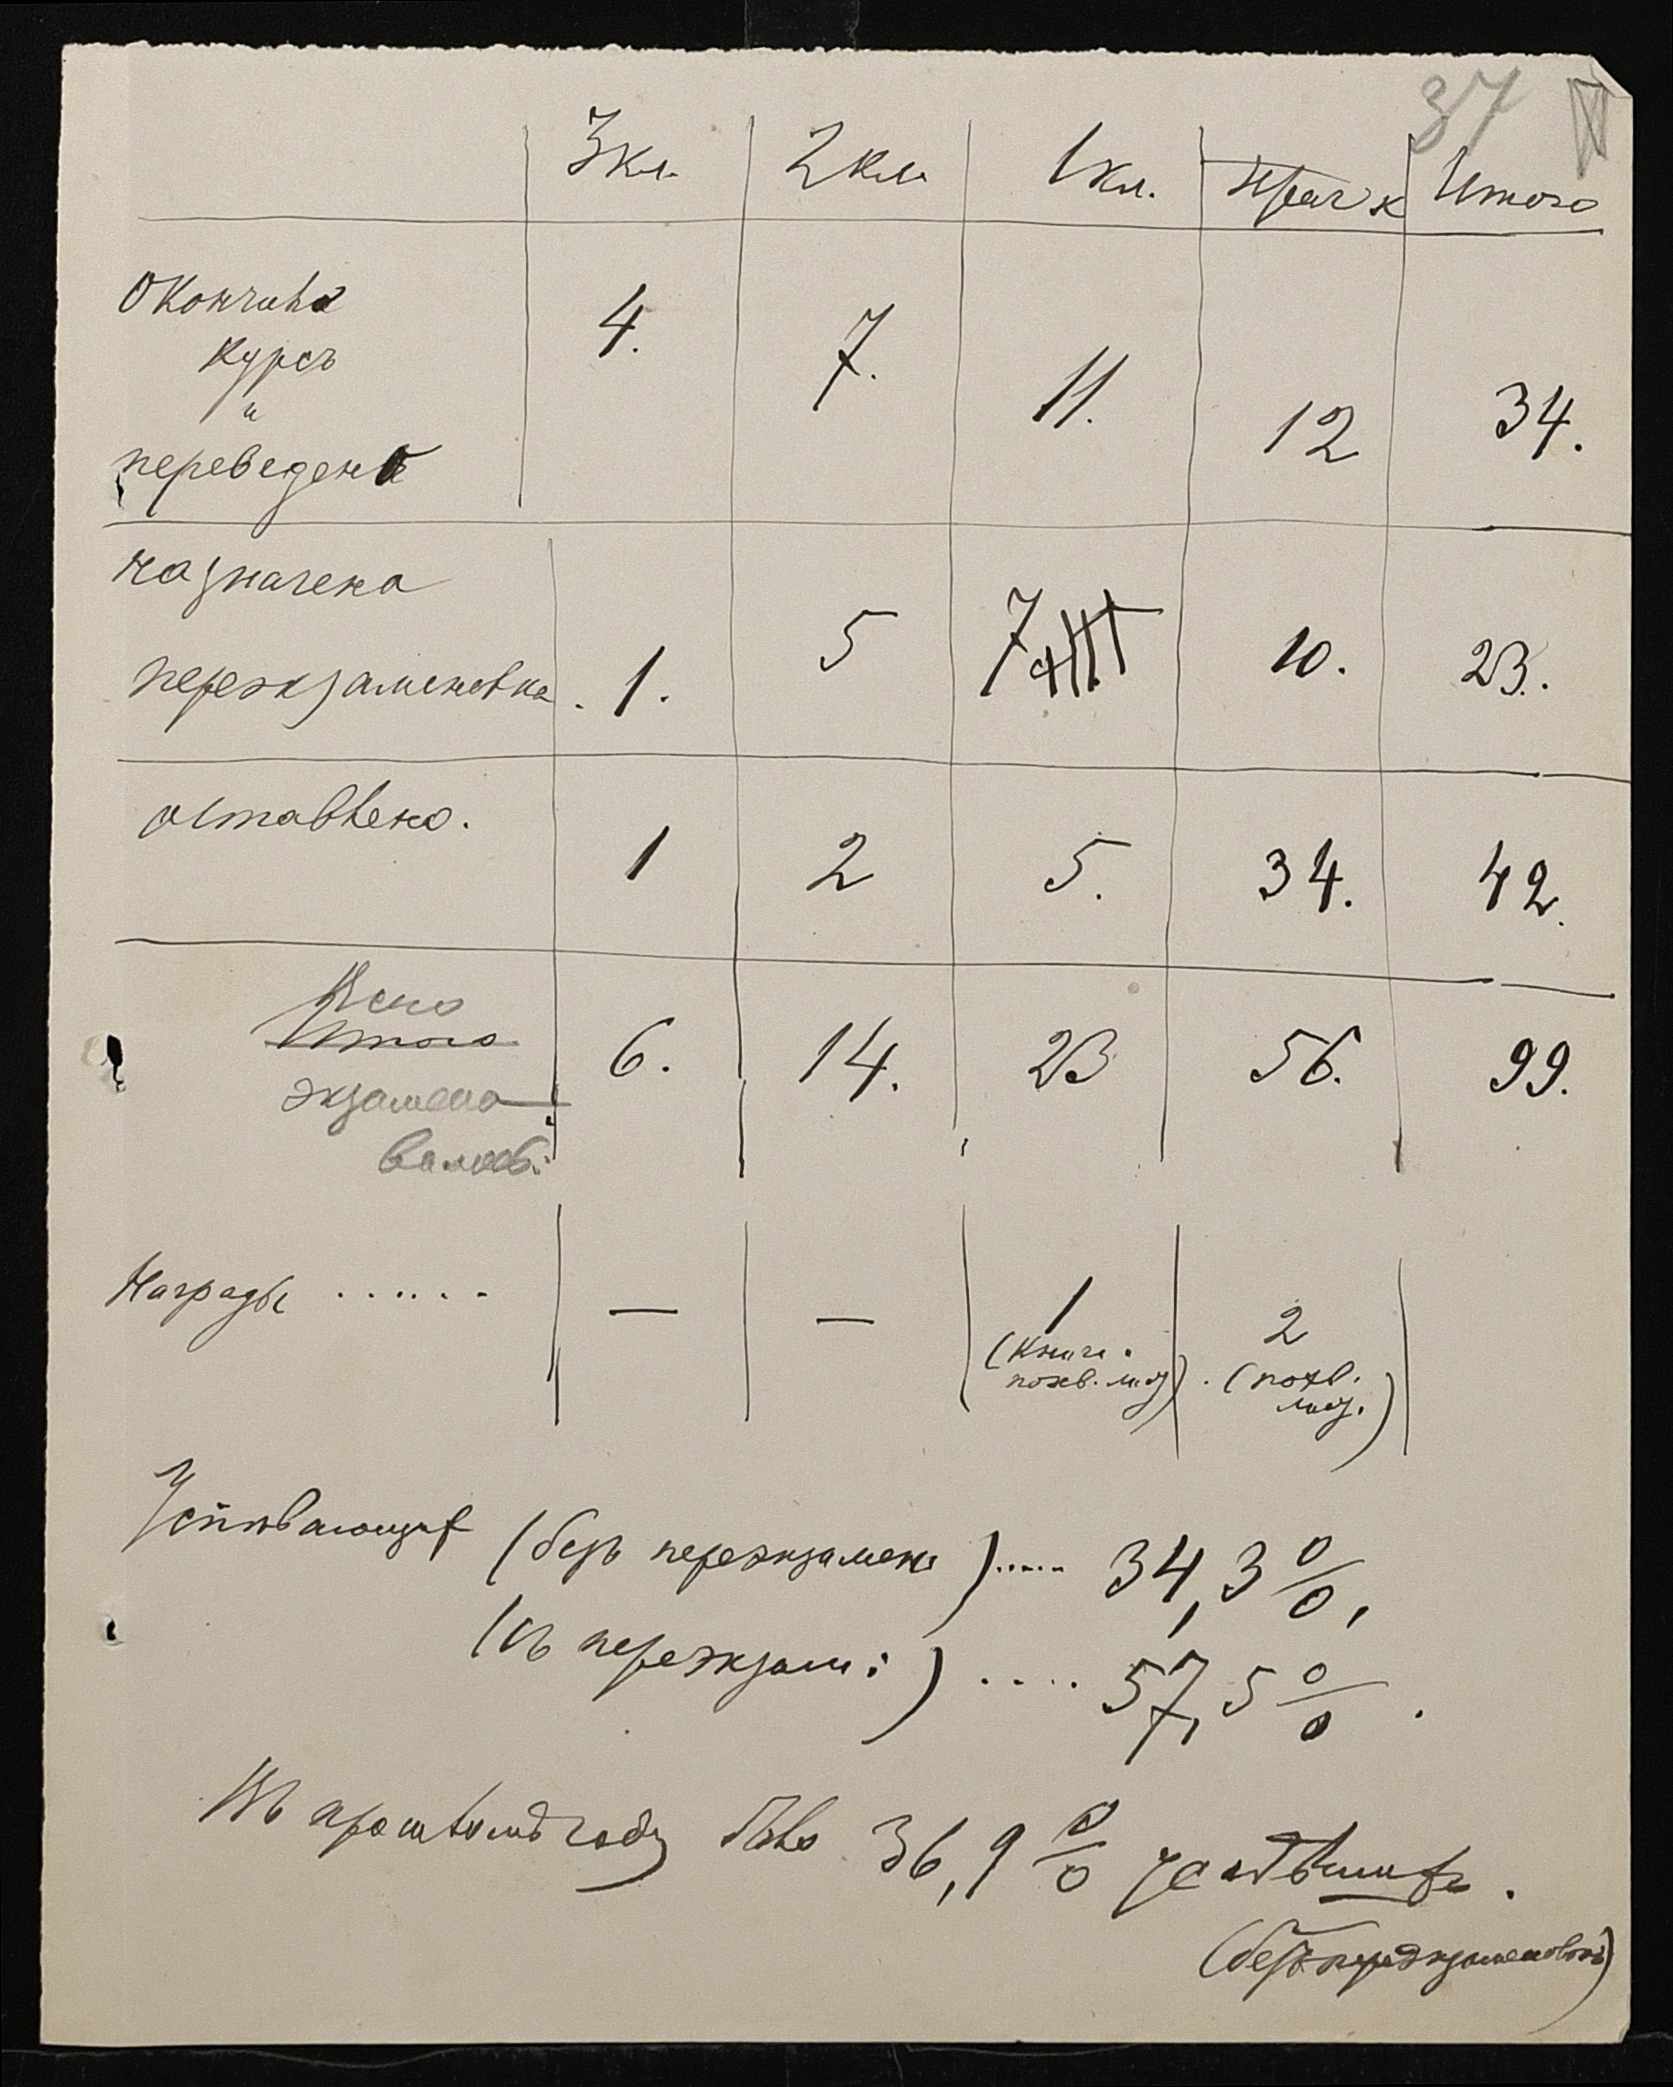 37
3 кл. 2 кл. 1 кл. Итого
Окончило 4. 7. 11. 12 34.
курсъ
и
переведено
назначена
переэкзаменовка. 1. 5 7 10. 23.
оставлено. 1 2 5. 34. 42.
Всего
Итого 6. 14. 23 56. 99.
экзамено-
валось:
Награды ...... — — 1 2
(книга. (похв.
похв. лист). лист.)
Успѣвающихъ (безъ переэкзамен.) ..... 34,3%,
(съ переэкзам:) .... 57,5%.
Въ прошломъ году было 36,9%
(безъ переэкзаменовокъ)